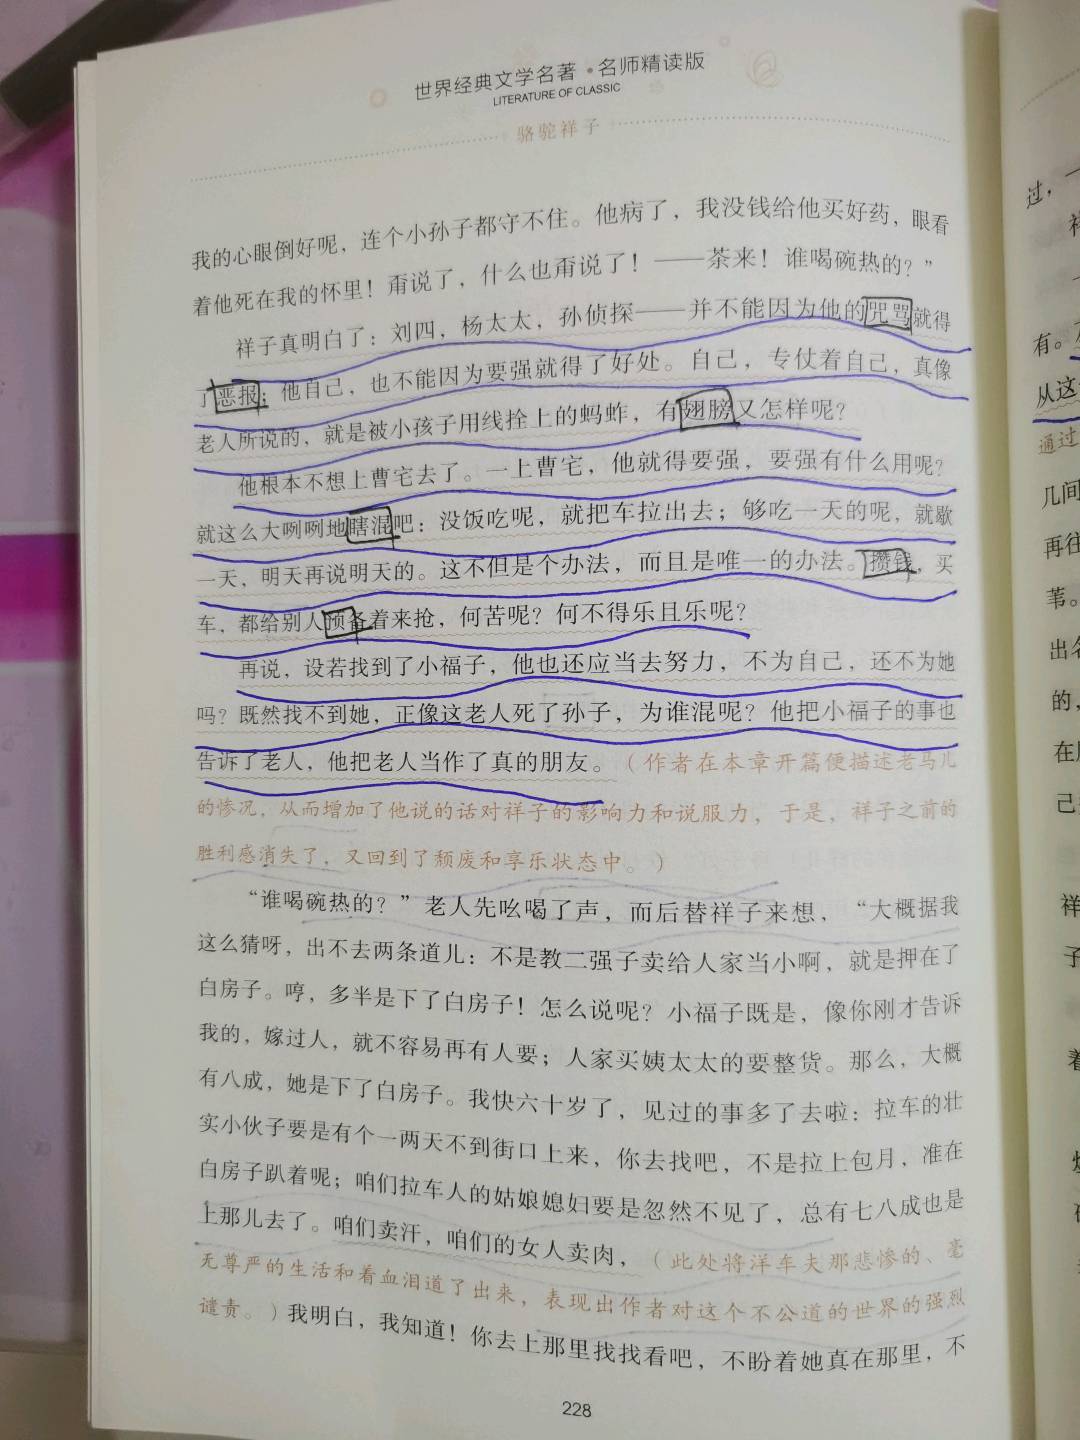 世界经典文学名著·名师精读版
LITERATURE OF CLASSIC
骆驼祥子
我的心眼倒好呢，连个小孙子都守不住。他病了，我没钱给他买好药，眼看
着他死在我的怀里！甭说了，什么也甭说了！——茶来！谁喝碗热的？”
祥子真明白了：刘四，杨太太，孙侦探——并不能因为他的咒骂就得
了恶报；他自己，也不能因为要强就得了好处。自己，专仗着自己，真像
老人所说的，就是被小孩子用线拴上的蚂蚱，有翅膀又怎样呢？
他根本不想上曹宅去了。一上曹宅，他就得要强，要强有什么用呢？
就这么大咧咧地瞎混吧：没饭吃呢，就把车拉出去；够吃一天的呢，就歇
一天，明天再说明天的。这不但是个办法，而且是唯一的办法。攒钱，买
车，都给别人预备着来抢，何苦呢？何不得乐且乐呢？
再说，设若找到了小福子，他也还应当去努力，不为自己，还不为她
吗？既然找不到她，正像这老人死了孙子，为谁混呢？他把小福子的事也
告诉了老人，他把老人当作了真的朋友。（作者在本章开篇便描述老马儿
的惨况，从而增加了他说的话对祥子的影响力和说服力，于是，祥子之前的
胜利感消失了，又回到了颓废和享乐状态中。）
“谁喝碗热的？”老人先吆喝了声，而后替祥子来想，“大概据我
这么猜呀，出不去两条道儿：不是教二强子卖给人家当小啊，就是押在了
白房子。哼，多半是下了白房子！怎么说呢？小福子既是，像你刚才告诉
我的，嫁过人，就不容易再有人要；人家买姨太太的要整货。那么，大概
有八成，她是下了白房子。我快六十岁了，见过的事多了去啦：拉车的壮
实小伙子要是有个一两天不到街口上来，你去找吧，不是拉上包月，准在
白房子趴着呢；咱们拉车人的姑娘媳妇要是忽然不见了，总有七八成也是
上那儿去了。咱们卖汗，咱们的女人卖肉，（此处将洋车夫那悲惨的、毫
无尊严的生活和着血泪道了出来，表现出作者对这个不公道的世界的强烈
谴责。）我明白，我知道！你去上那里找找看吧，不盼着她真在那里，不
228
过，一
有。
从这
通过
几间
再往
苇。
出名
的，
己
祥
子
着